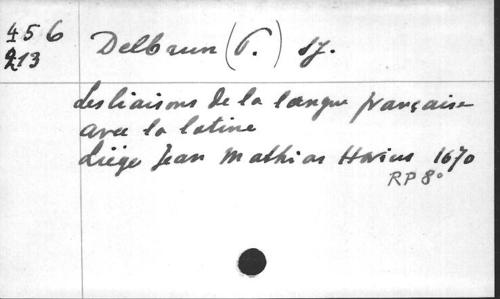 456
213
Delbrun (P.) SJ.
Les liaisons de la langue française
avec la latine
Liège Jean Mathias Hovius 1670
RP 8°